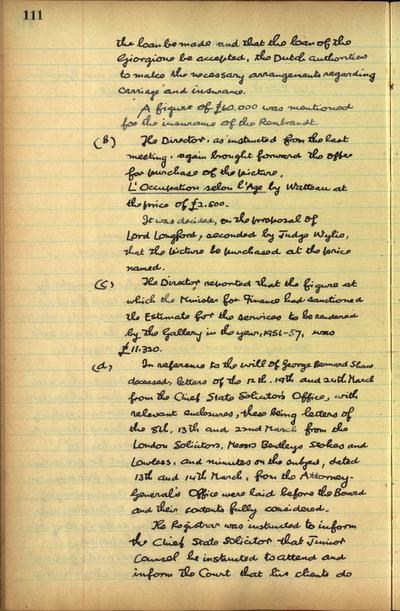 111
the loan be made and that the loan of the
Giorgione be accepted, the Dutch authorities
to make the necessary arrangements regarding
carriage and insurance.
A figure of £60.000 was mentioned
for the insurance of the Rembrandt.
(B) The Director, as instructed from the last
meeting, again brought forward the offer
for purchase of the picture,
L'Occupation selon l'Age by Watteau at
the price of £2.500.
It was decided, on the proposal of
Lord Longford, seconded by Judge Wylie,
that the picture be purchased at the price
named.
(C) The Director reported that the figure at
which the Minister for Finance had sanctioned
the Estimate for the services to be rendered
by the Gallery in the year, 1956-57, was
£11.320.
(d) In reference to the will of George Bernard Shaw
deceased, letters of the 12th. 19th and 24th March
from the Chief State Solicitor's Office, with
relevant enclosures, these being letters of
the 8th, 13th and 22nd March from the
London Solicitors, Messrs Bentleys Stokes and
Lawless, and minutes on the subject, dated
13th and 14th March, from the Attorney-
General's Office were laid before the Board
and their contents fully considered.
The Registrar was instructed to inform
the Chief State Solicitor that Junior
Counsel be instructed to attend and
inform the Court that his clients do